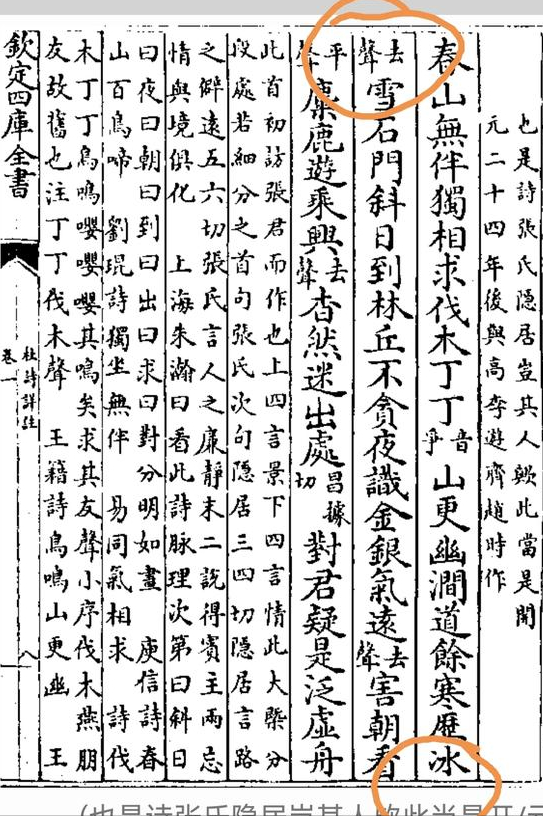 也是詩張氏隱居豈其人歟此當是開
元二十四年後與高李遊齊趙時作
春山無伴獨相求伐木丁丁音爭山更幽澗道餘寒歷冰
去聲雪石門斜日到林丘不貪夜識金銀氣遠去聲害朝看
平聲麋鹿遊乘興去聲杳然迷出處昌據切對君疑是泛虛舟
此首初訪張君而作也上四言景下四言情此大槩分
段處若細分之首句張氏次句隱居三四切隱居言路
之僻遠五六切張氏言人之廉靜末二說得賓主兩忘
情與境俱化 上海朱瀚曰看此詩脉理次第曰斜日
曰夜曰朝曰到曰出曰求曰對分明如畫 庾信詩春
山百鳥啼 劉琨詩獨坐無伴 易同氣相求 詩伐
木丁丁鳥鳴嚶嚶嚶其鳴矣求其友聲小序伐木燕朋
友故舊也注丁丁伐木聲 王籍詩鳥鳴山更幽 王
欽定四庫全書
杜詩詳註
卷一
八